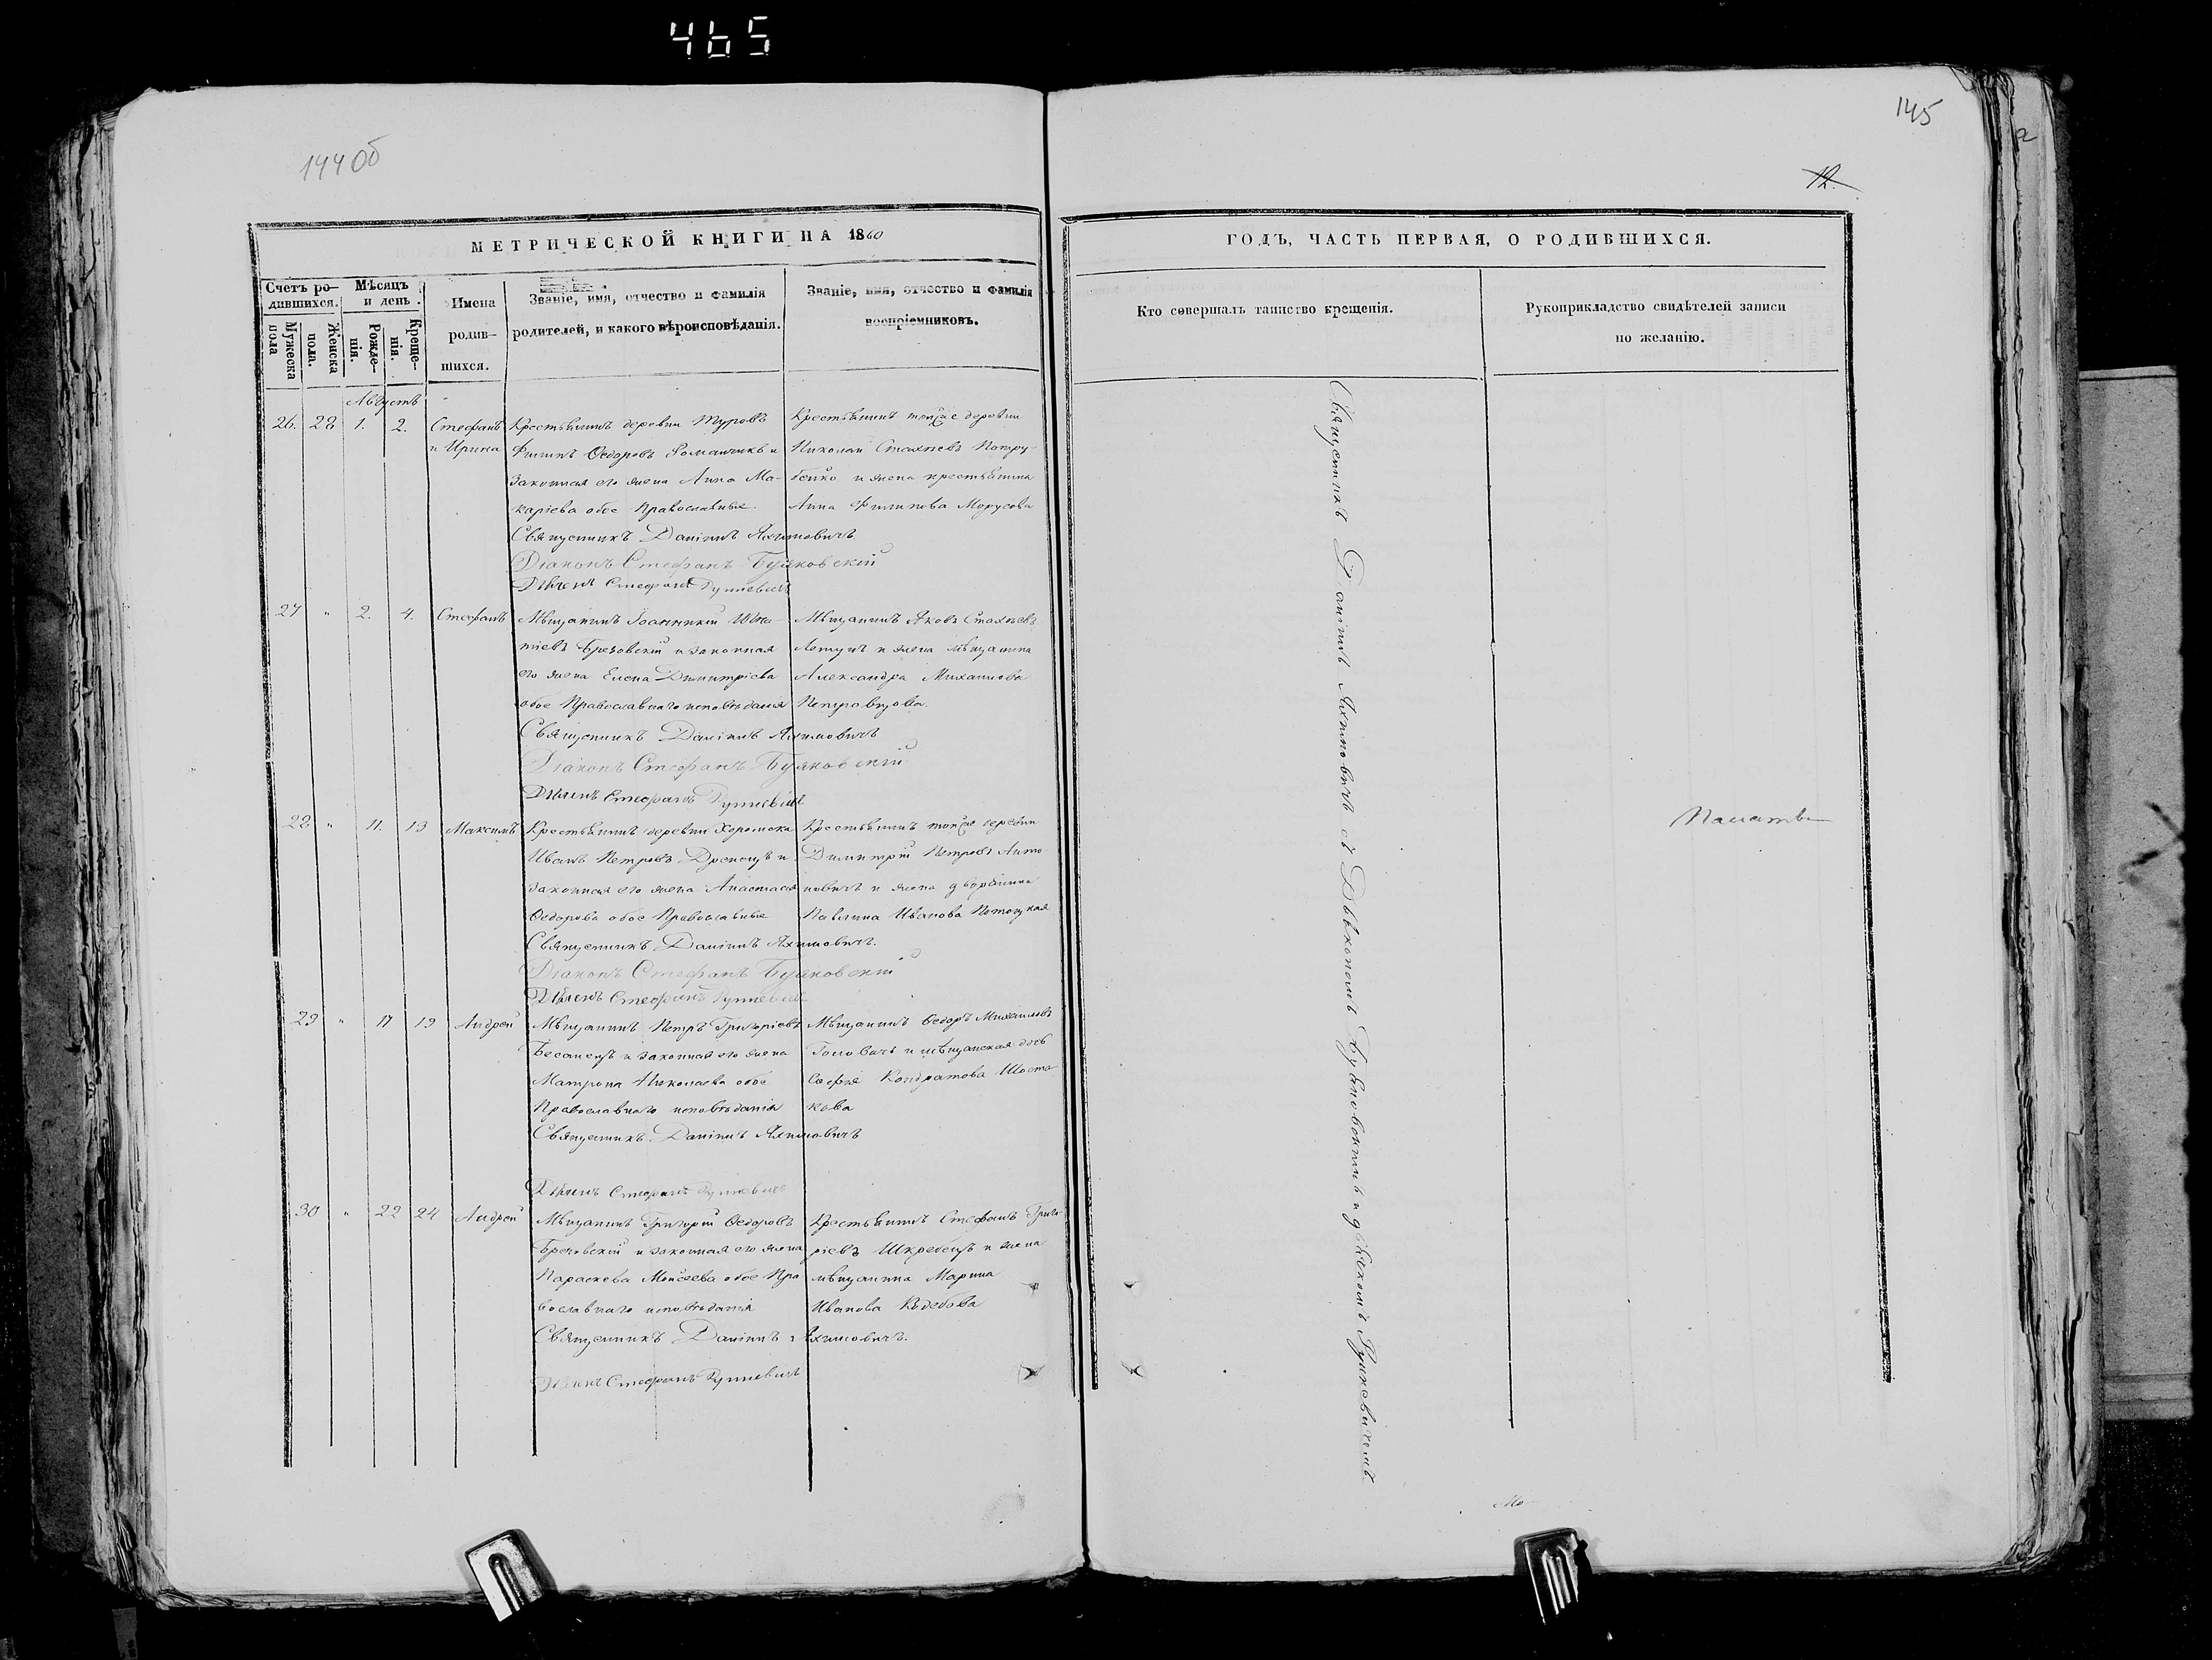 465
144 Об
145
12.
МЕТРИЧЕСКОЙ КНИГИ НА 1860
ГОДЪ, ЧАСТЬ ПЕРВАЯ, О РОДИВШИХСЯ.
Счетъ ро-
дившихся.
Мужеска пола
Женска пола.
Мѣсяцъ
и день.
Рожде-
нія.
Креще-
нія.
Имена
родив-
шихся.
Званіе, имя, отчество и фамилія
родителей, и какого вѣроисповѣданія.
Званіе, имя, отчество и фамилія
воспріемниковъ.
Кто совершалъ таинство крещенія.
Рукоприкладство свидѣтелей записи
по желанію.
Августъ
26. 28 1. 2.
Стефанъ
и Ирина
Крестьянинъ деревни Туровъ
Филипъ Ѳедоровъ Романчикъ и
законная его жена Анна Ма-
каріева обое Православные
Священникъ Даніилъ Яхимовичъ
Діаконъ Стефанъ Буяковскій
Дьячекъ Стефанъ Рункевичъ
Крестьянинъ тойже деревни
Николай Стахіевъ Петру-
бейко и жена крестьянина
Анна Филипова Морусова
27 " 2. 4.
Стефанъ
Мѣщанинъ Іоанникій Игна-
тіевъ Брезовскій и законная
его жена Елена Димитріева
обое Православнаго исповѣданія
Священникъ Даніилъ Яхимовичъ
Діаконъ Стефанъ Буяковскій
Дьячекъ Стефанъ Рункевичъ
Мѣщанинъ Яковъ Стахіевъ
и жена мѣщанина
Александра Михаилова
28 " 11. 13
Максимъ
Крестьянинъ деревни Хоромска
Иванъ Петровъ Дрекецъ и
законная его жена Анастасія
Ѳедорова обое Православные
Священникъ Даніилъ Яхимовичъ.
Діаконъ Стефанъ Буяковскій
Дьячекъ Стефанъ Рункевичъ
Крестьянинъ тойже деревни
Димитрій Петровъ Анто-
новичъ и жена дворянина
Павлина Иванова Потоцкая
29 " 17 19
Андрей
Мѣщанинъ Петръ Григоріевъ
и законная его жена
Матрона Николаева обое
Православнаго исповѣданія
Священникъ Даніилъ Яхимовичъ
Дьячекъ Стефанъ Рункевичъ
Мѣщанинъ Ѳедоръ Михаиловъ
Головачъ и мѣщанская дочь
Софія Кондратова Шоста-
кова
30 " 22 24
Андрей
Мѣщанинъ Григорій Ѳедоровъ
Бречовскій и законная его жена
Параскева Моисеева обое Пра-
вославнаго исповѣданія
Священникъ Даніилъ Яхимовичъ.
Дьячекъ Стефанъ Рункевичъ
Крестьянинъ Стефанъ Григо-
ріевъ Шкребецъ и жена
мѣщанина Марина
Иванова
Священникъ Даніилъ Яхимовичъ съ Діакономъ Буяковскимъ и дьячкомъ Рункевичемъ.